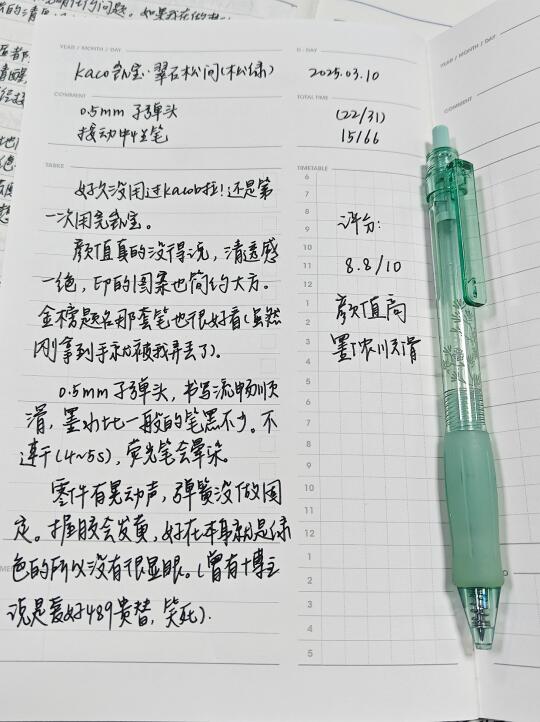 YEAR / MONTH / DAY
kaco翕宝·翠石松间(松绿)
COMMENT
0.5mm 子弹头
按动中性笔
D-DAY
2025.03.10
TOTAL TIME
(22/31)
15166
TASKS
好久没用过kaco啦!还是第
一次用完翕宝。
颜值真的没得说,清透感
一绝,印的图案也简约大方。
金榜题名那套笔也很好看(虽然
刚拿到手就被我弄丢了)。
0.5mm 子弹头,书写流畅顺
滑,墨水比一般的笔黑不少。不
速干(4~5s),荧光笔会晕染。
零件有晃动声,弹簧没做固
定。握胶会发黄,好在本身就是绿
色的所以没有很显眼。(曾有博主
说是爱好489贵替,笑死).
TIMETABLE
6
7
8
9
10
11
12
1
2
3
4
5
6
7
8
9
10
11
12
1
2
3
4
5
评分:
8.8/10
颜值高
墨浓顺滑
YEAR / MONTH / DAY
COMMENT